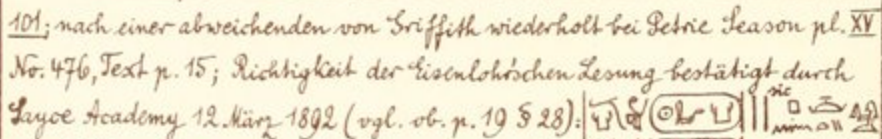 101; nach einer abweichenden von Griffith wiederholt bei Petrie Season pl. XV
No. 476, Text p. 15; Richtigkeit der Eisenlohr'schen Lesung bestätigt durch
Sayce Academy 12. März 1892 (vgl. ob. p. 19 § 28): sic